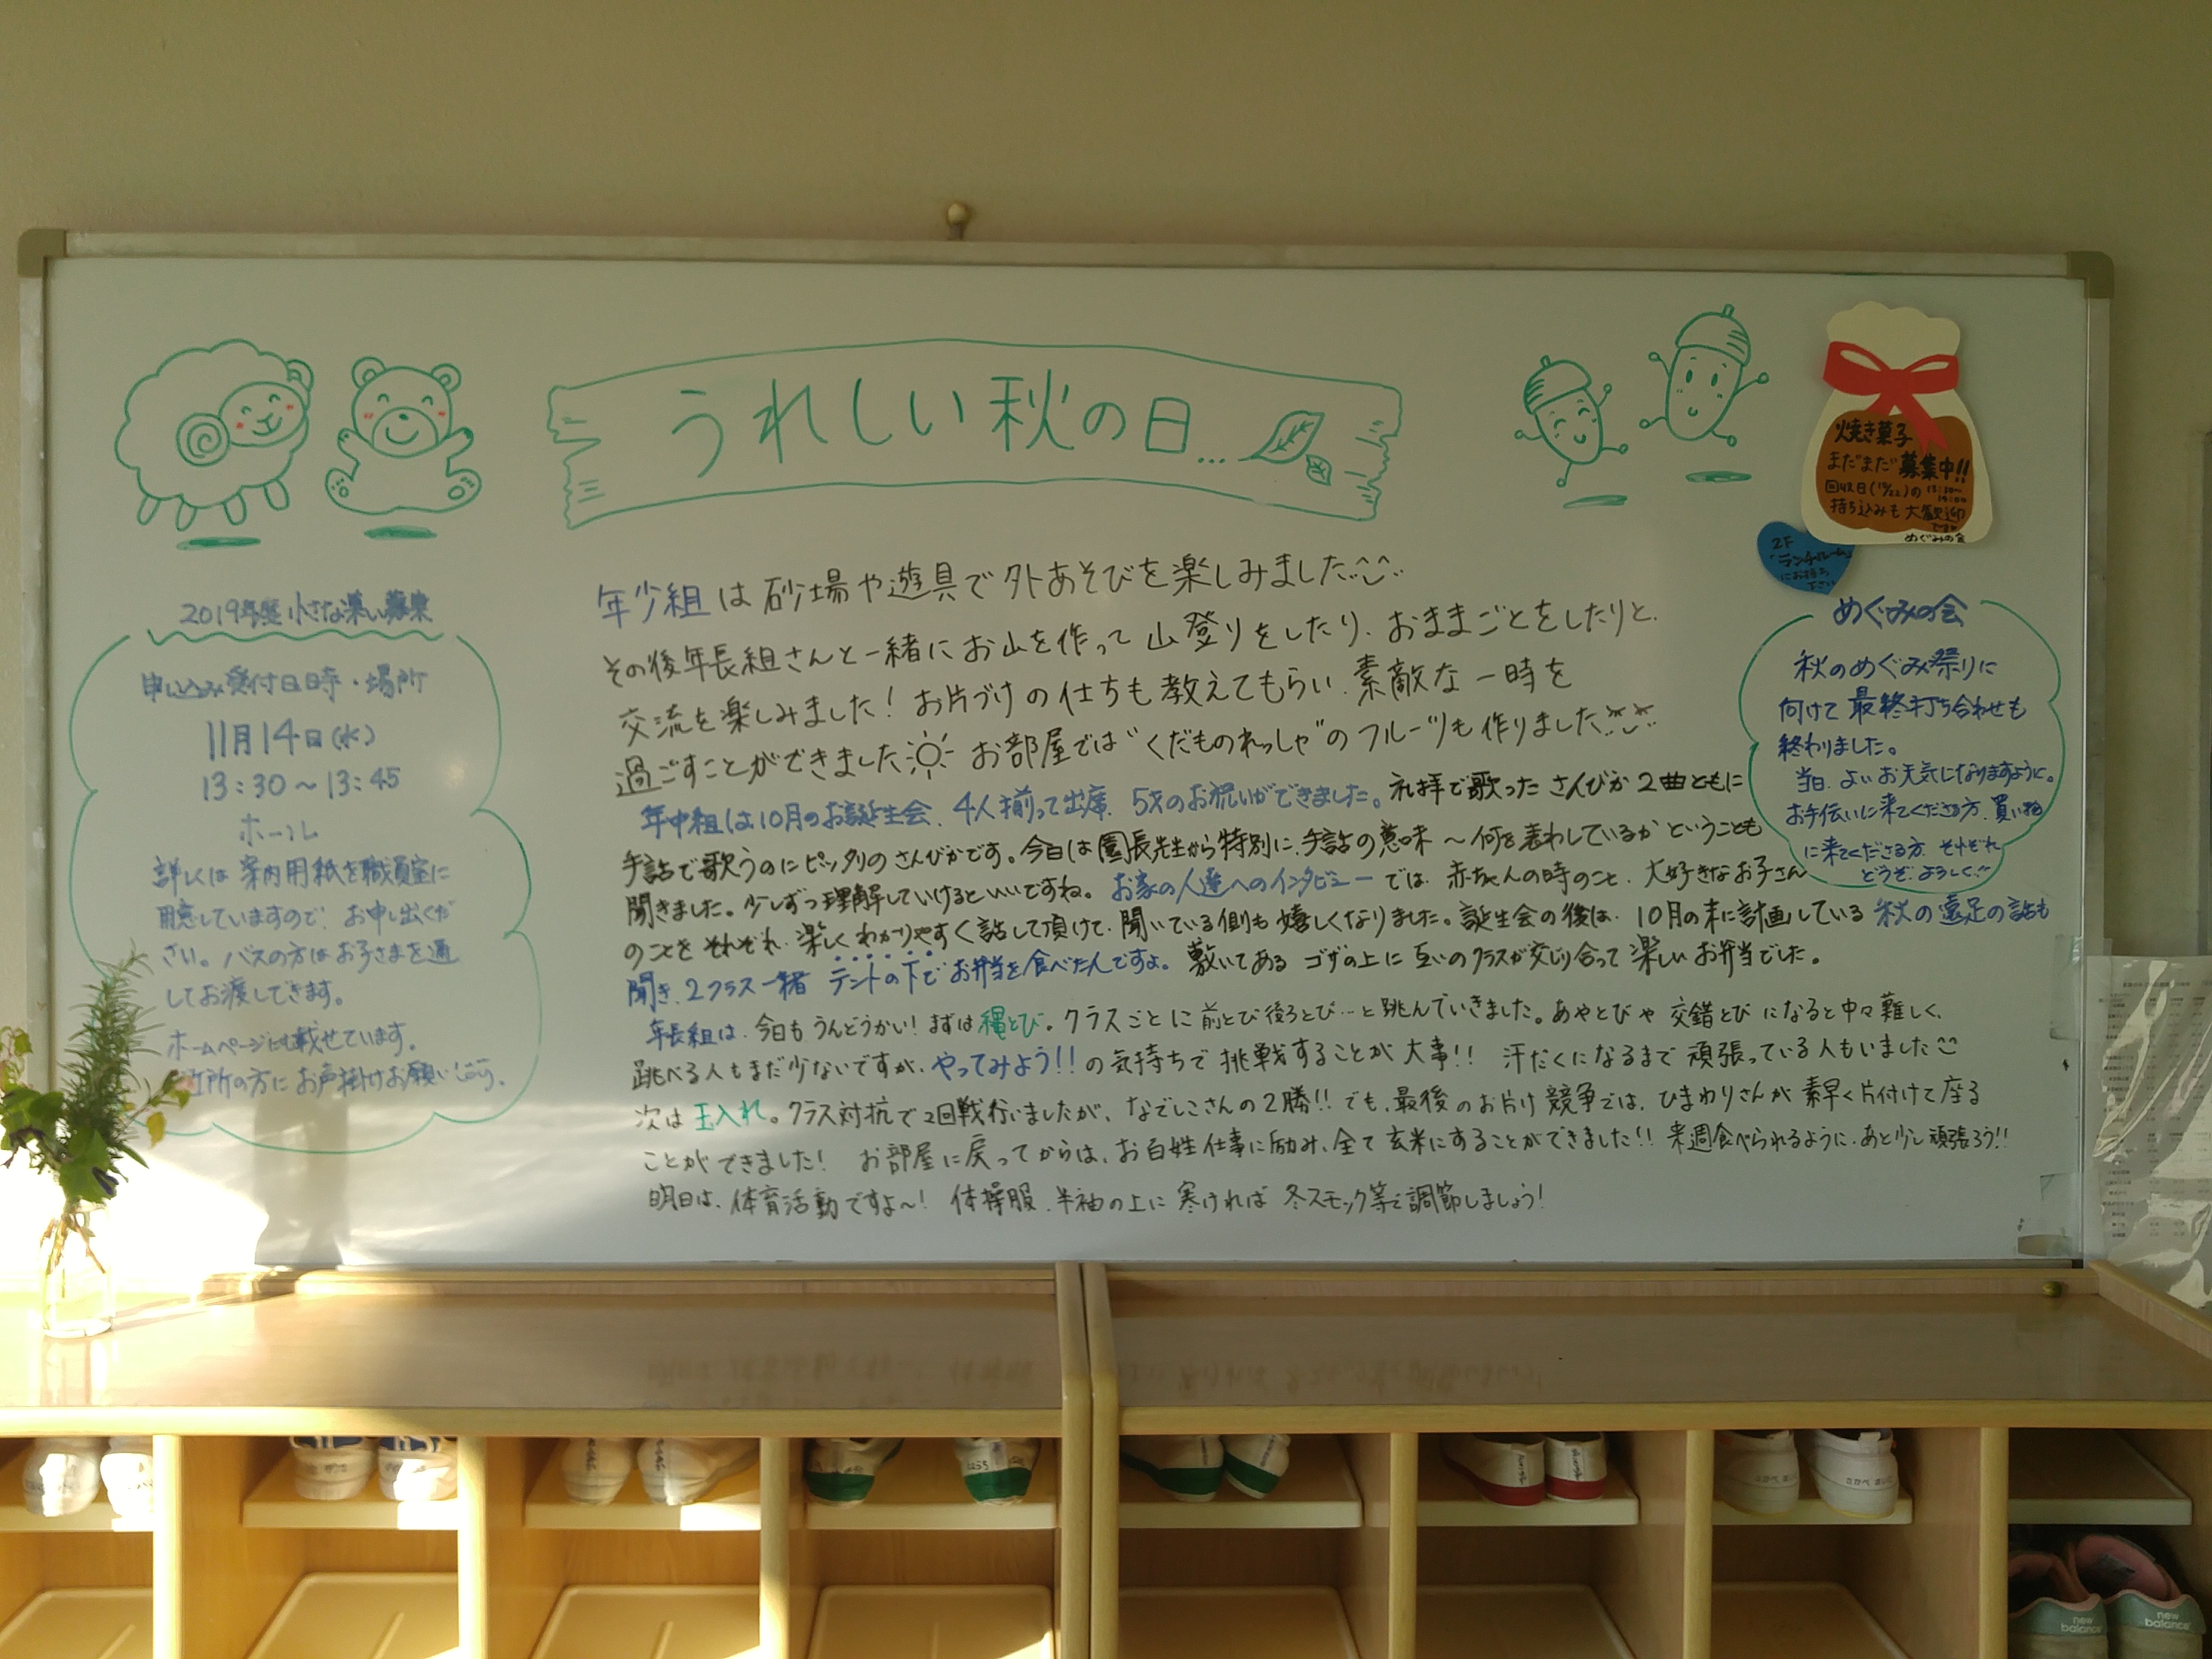 うれしい秋の日…
2019年度 小さな楽しい募集
申し込み受付日時・場所
11月14日(水)
13:30〜13:45
ホール
詳しくは案内用紙を職員室に
用意していますので、お申し出くだ
さい。バスの方はお子さまを通
してお渡しできます。
ホームページにも載せています。
近所の方にお声掛けお願い
年少組は砂場や遊具で外あそびを楽しみました
その後年長組さんと一緒にお山を作って山登りをしたり、おままごとをしたりと、
交流を楽しみました！お片づけの仕方も教えてもらい、素敵な一時を
過ごすことができました お部屋では"くだものれっしゃ"のフルーツも作りました
年中組は10月のお誕生会、4人揃って出席、5才のお祝いができました。礼拝で歌ったさんびか2曲ともに
手話で歌うのにピッタリのさんびかです。今日は園長先生から特別に、手話の意味〜何を表わしているかということも
聞きました。少しずつ理解していけるといいですね。お家の人達へのインタビューでは、赤ちゃんの時のこと、大好きなお子さん
のことをそれぞれ、楽しくわかりやすく話して頂けて、聞いている側も嬉しくなりました。誕生会の後は、10月の末に計画している秋の遠足の話も
聞き、2クラス一緒 テントの下でお弁当を食べたんですよ。敷いてあるゴザの上に互いのクラスが交じり合って楽しいお弁当でした。
年長組は、今日もうんどうかい！まずは縄とび。クラスごとに前とび後ろとび…と跳んでいきました。あやとびや交錯とびになると中々難しく、
跳べる人もまだ少ないですが、やってみよう!!の気持ちで挑戦することが大事!! 汗だくになるまで頑張っている人もいました
次は玉入れ。クラス対抗で2回戦行いましたが、なでしこさんの2勝!!でも、最後のお片付け競争では、ひまわりさんが素早く片付けて座る
ことができました！ お部屋に戻ってからは、お百姓仕事に励み、全て玄米にすることができました!! 来週食べられるように、あと少し頑張ろう!!
明日は、体育活動ですよ〜！ 体操服、半袖の上に寒ければ冬スモック等で調節しましょう！
焼き菓子
まだまだ募集中!!
(10/22)の 13:30〜
持ち込みも大歓迎
です
めぐみの会
2F
ランチルーム
にお持ち
下さい
めぐみの会
秋のめぐみ祭りに
向けて最終打ち合わせも
終わりました。
当日、よいお天気になりますように。
お手伝いに来てくださる方、買い物
に来てくださる方、それぞれ
どうぞ、よろしく
new balance
new balance